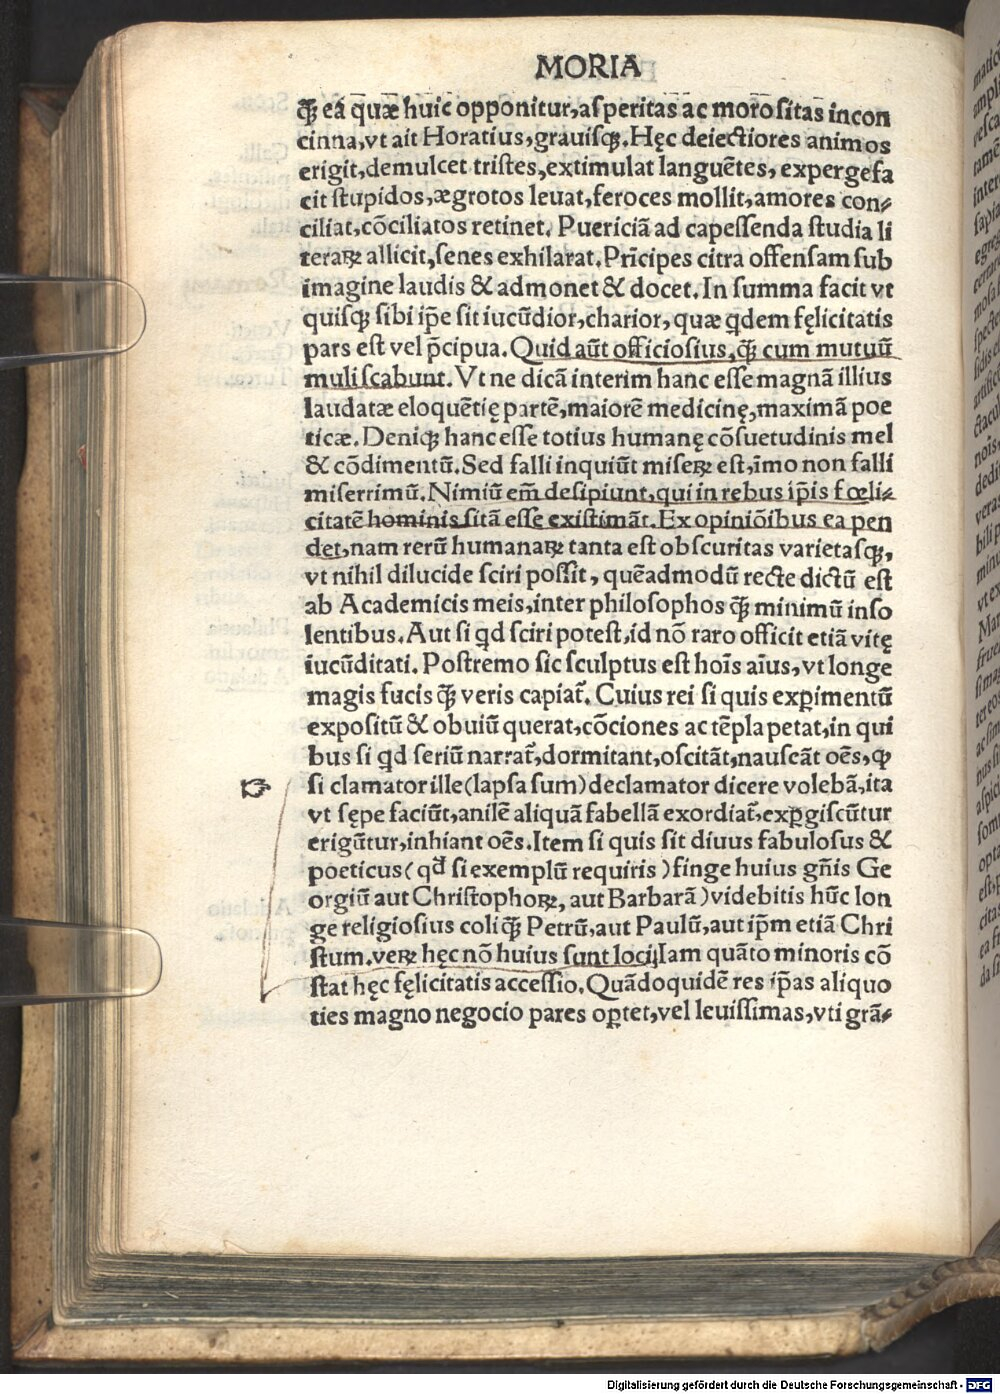 MORIA
ꝙ̃ ea quæ huic opponitur, asperitas ac morositas incon
cinna, vt ait Horatius, grauisqꝫ. Hęc deiectiores animos
erigit, demulcet tristes, extimulat languētes, expergefa
cit stupidos, ægrotos leuat, feroces mollit, amores con⸗
ciliat, cōciliatos retinet. Puericiā ad capessenda studia li
teraꝝ allicit, senes exhilarat. Prīcipes citra offensam sub
imagine laudis & admonet & docet. In summa facit vt
quisqꝫ sibi ip̄e sit iucūdior, charior, quæ qdem fęlicitatis
pars est vel p̄cipua. Quid aūt officiosius, ꝙ̃ cum mutuū
muli scabunt. Vt ne dicā interim hanc esse magnā illius
laudatæ eloquētię partē, maiorē medicinę, maximā poe
ticæ. Deniqꝫ hanc esse totius humanę cōsuetudinis mel
& cōdimentū. Sed falli inquiūt miseꝝ est, īmo non falli
miserrimū. Nimiū em̄ desipiunt, qui in rebus ip̄is fœli⸗
citatē hominis sitā esse existimāt. Ex opiniōibus ea pen
det, nam rerū humanaꝝ tanta est obscuritas varietasqꝫ,
vt nihil dilucide sciri possit, quēadmodū recte dictū est
ab Academicis meis, inter philosophos ꝙ̃ minimū inso
lentibus. Aut si qd sciri potest, id nō raro officit etiā vitę
iucūditati. Postremo sic sculptus est hoīs aīus, vt longe
magis fucis ꝙ̃ veris capiat̃. Cuius rei si quis exꝑimentū
expositū & obuiū querat, cōciones ac tēpla petat, in qui
bus si qd seriū narrat̃, dormitant, oscitāt, nauscāt oēs, ꝙ
☞ si clamator ille (lapsa sum) declamator dicere volebā, ita
vt sępe faciūt, anilē aliquā fabellā exordiat̃, exꝑgiscūtur
erigūtur, inhiant oēs. Item si quis sit diuus fabulosus &
poeticus (qd̃ si exemplū requiris) finge huius gn̄is Ge
orgiū aut Christophoꝝ, aut Barbarā) videbitis hūc lon
ge religiosius coli ꝙ̃ Petrū, aut Paulū, aut ip̄m etiā Chri
stum. veꝝ hęc nō huius sunt loci. Iam quāto minoris cō
stat hęc fęlicitatis accessio. Quādoquidē res ip̄as aliquo
ties magno negocio pares oꝑtet, vel leuissimas, vti grā⸗
Digitalisierung gefördert durch die Deutsche Forschungsgemeinschaft - DFG